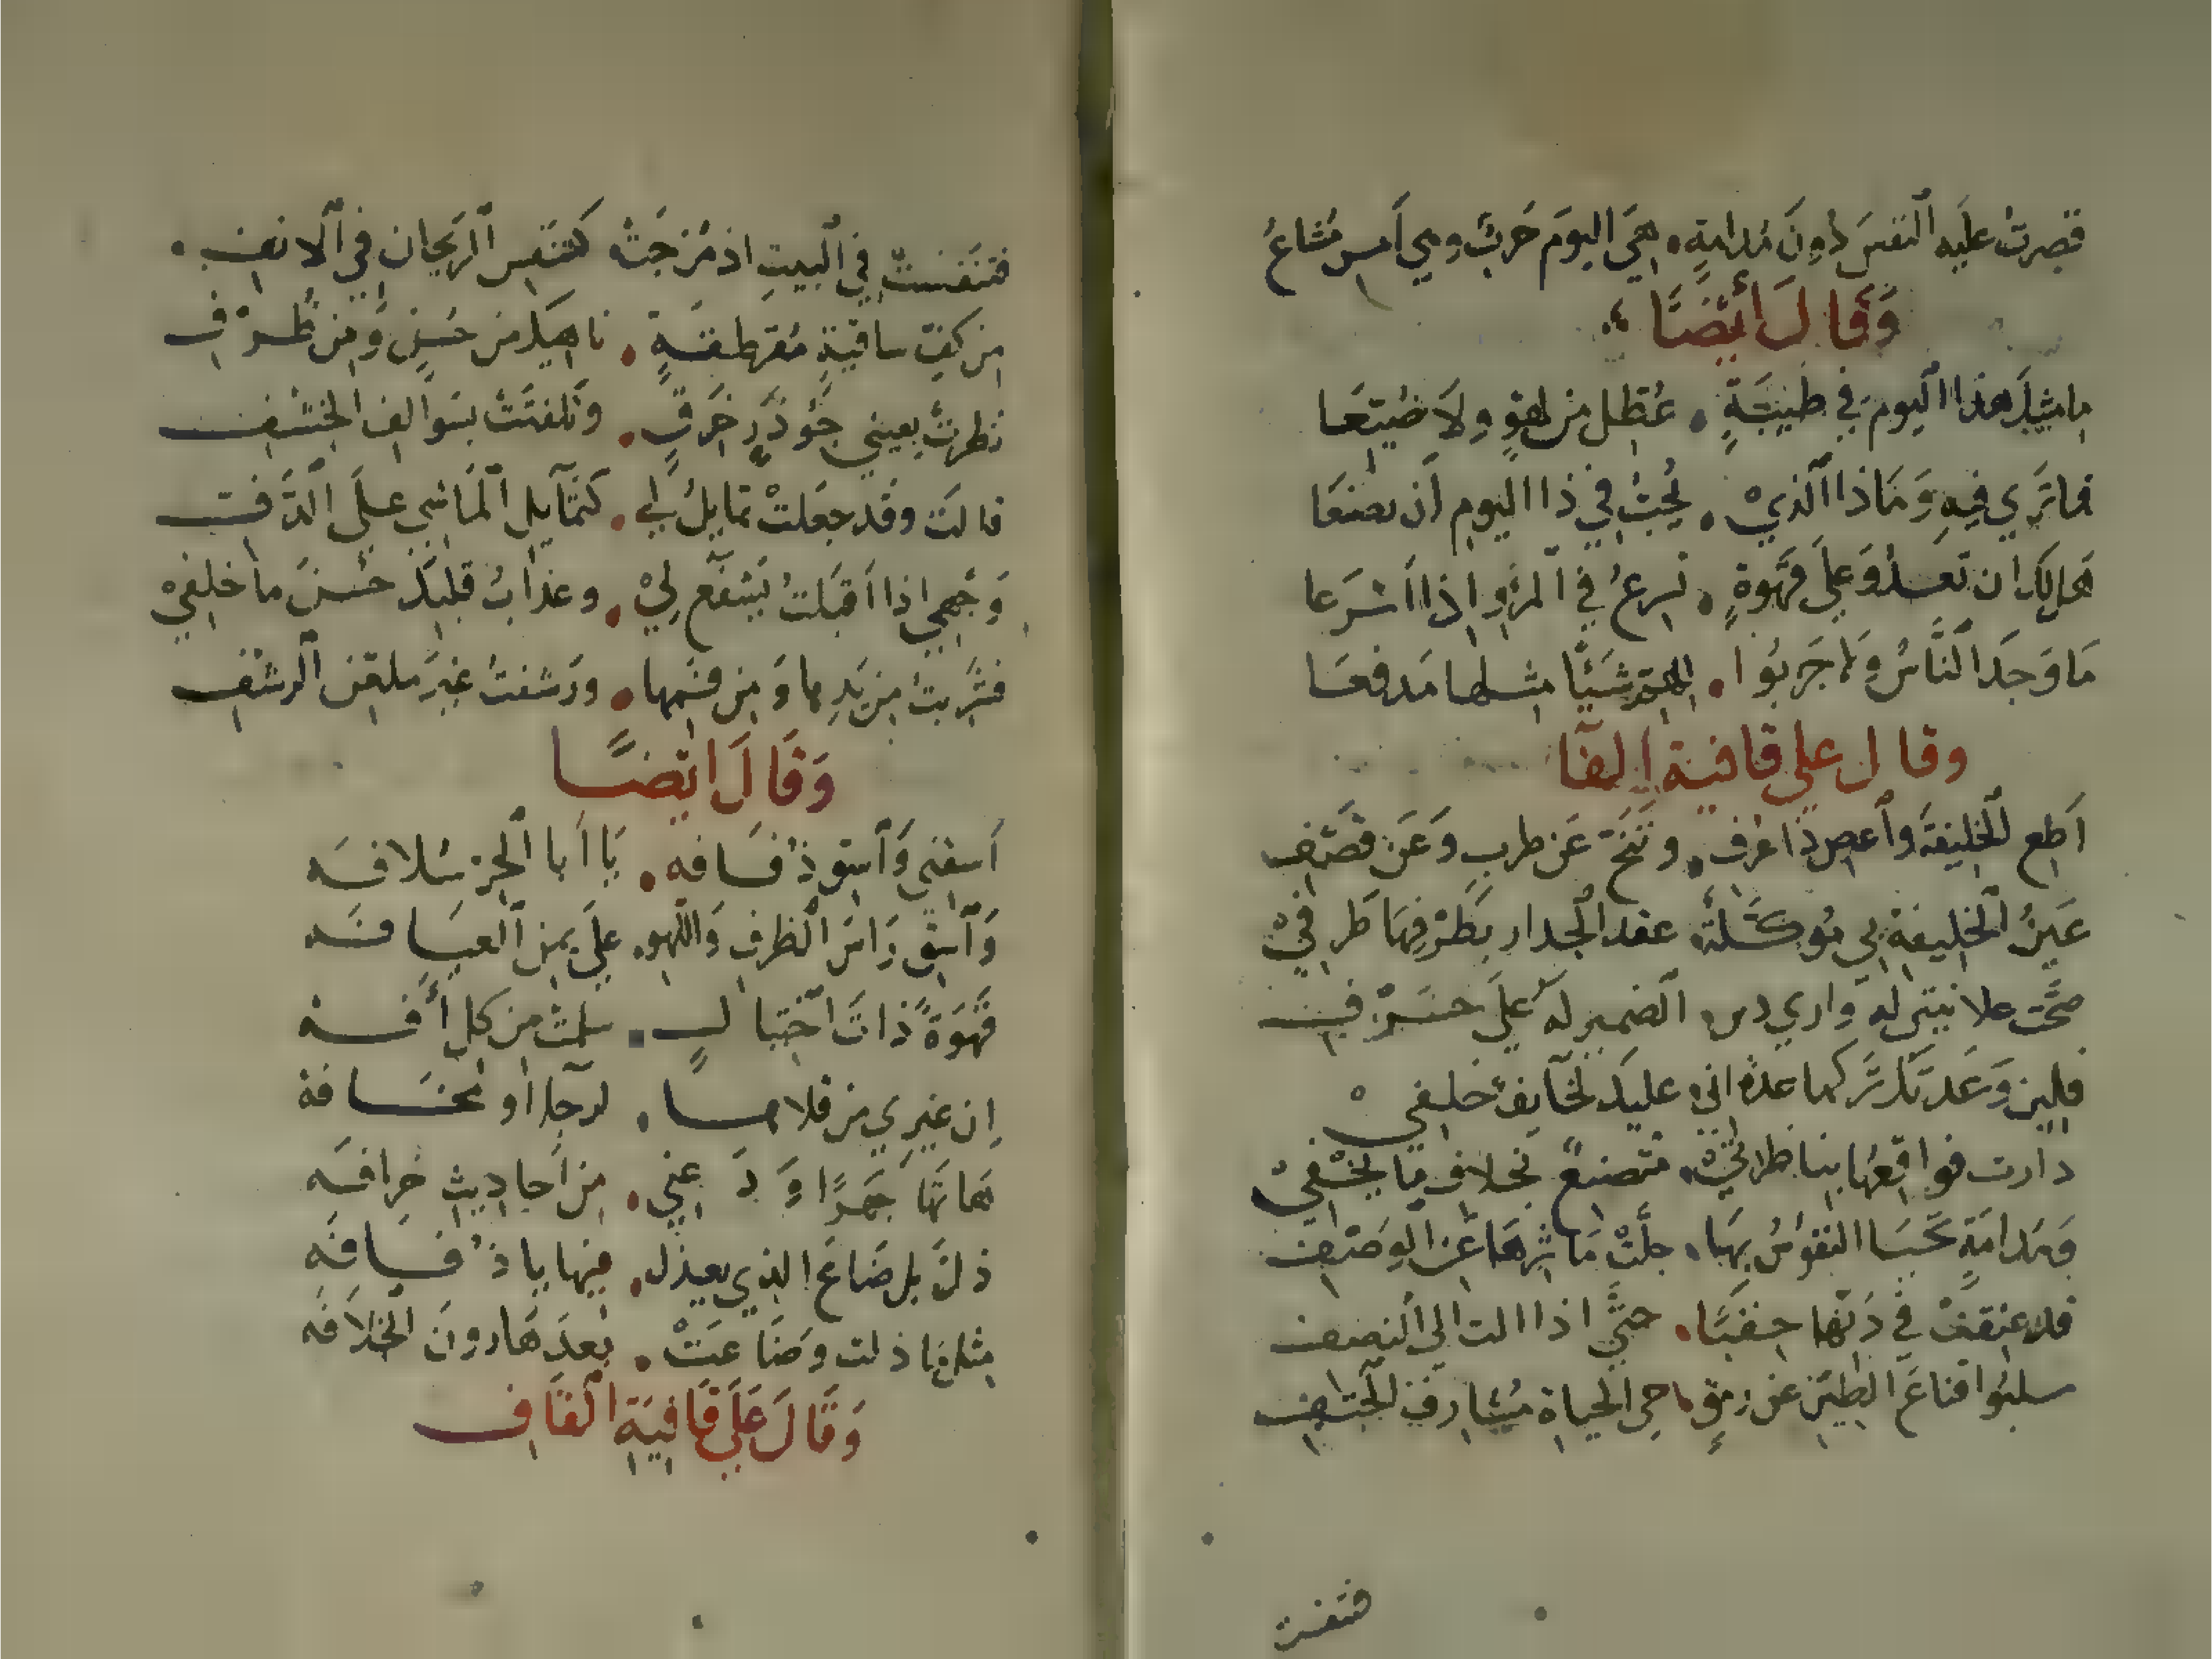 قصرتُ عليه النفسَ دونَ مُدامةٍ. هي اليومَ حَربٌ وهي أمسِ مُشاعُ
وَقَالَ أيضًا
ما مثلُ هذا اليوم في طيبَةٍ. عُطِّل من لهوٍ ولا ضُيّعا
فما تَري فيهِ وَمَاذا الذي. تُحِبُّ في ذا اليوم أن نصنعَا
هل لك ان تَغدُو علي قهوةٍ. تسرعُ في المرءِ اذا اسْرَعا
مَا وَجَدَ النَّاسُ ولا جَربُوا. للهمّ شَيئًا مثلها مَدفعَا
وقال علي قافية الفا
اَطِع الخليفةَ واعصِ ذا عزف. وتَنَحَّ عَن طربٍ وَعَن قَصْف
عَينُ الخليفة بي مُوكَّلةٌ. عقد الحِدار بطَرْفِهَا طَرفيْ
صحّت علانيتي له واري دين الضمير له عَلَي حَرْف
فلين وَعَدتُكَ تركَها عدةً اني عليك لخائفٌ خلفي
دارت فواقعُها بناظرتيْ. متصنعٌ بخلاف ما يُخْفيْ
ومُدامَةٍ تَحيَا النفوسُ بهَا. جلَّتْ مآثرُهَا عَن الوصْف
قد عتقتْ في دَنّها حِقَبًا. حَتَّي اذا الت الي النصف
سلبُوا قناعَ الطين عن رمقٍ حيِّ الحياة مُشارفِ الحتف
فتنفست
فتنَفستْ في البيتِ اذ مُزجَتْ كتنَفسِ الرَيحان في الانف.
من كفِّ ساقيةٍ مُقرطقةٍ. ناهيكَ من حُسنٍ ومن ظَرْف
نظرتْ بعيني جُؤذَرٍ خَرقٍ. وتلفتَتْ بسَوالفِ الخشف
قالت وقد جعلتْ تمايلُ لي. كتمآيل الماشي عَلَي الدَّف
وَجهي اذا اَقبَلتُ يَشفَع ليْ. وعذابُ قلبِكَ حُسنُ ما خلفيْ
فشَربتُ من يَدِها وَمن فمها. ورَشفتُ غيرَ ملعَّن الرشْف
وَقَالَ ايضًا
اَسقِني وَاسقِ ذُفَافه. يَا اَبا الحر سُلافَه
وَاسقِ رَاسَ الظرفِ وَاللهو. علي يمن العيَافَه
قَهوَةً ذاتَ اختيالٍ. سلمتْ من كل أفَه
اِن غيري من قلاها. لرجا او مخافة
هَاتهَا جَهرًا وَدَعني. مِن اَحاديثِ خرافَه
ذلَّ بل ضَاعَ الذي يعذل. فيها يا ذُفَافَه
مثلما ذلت وضَاعَتْ. بعدَ هَارونَ الخلافَه
وَقَالَ عَلَي قَافيَةِ القَاف